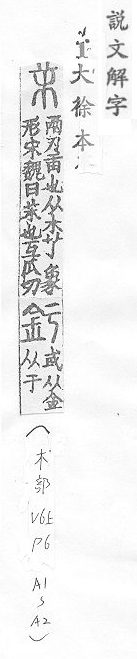 説文解字
大徐本
兩刃臿也从木𦫳象
形宋魏曰茉也互瓜切
或从金
从于
(木部
V6上
P6
A1
S
A2)